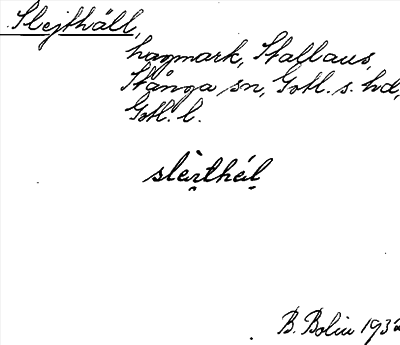 Slejthäll,
hagmark, Stallaus,
Stånga sn, Gotl. s. hd,
Gotl. l.
slèɪthál
B. Bolin 1932